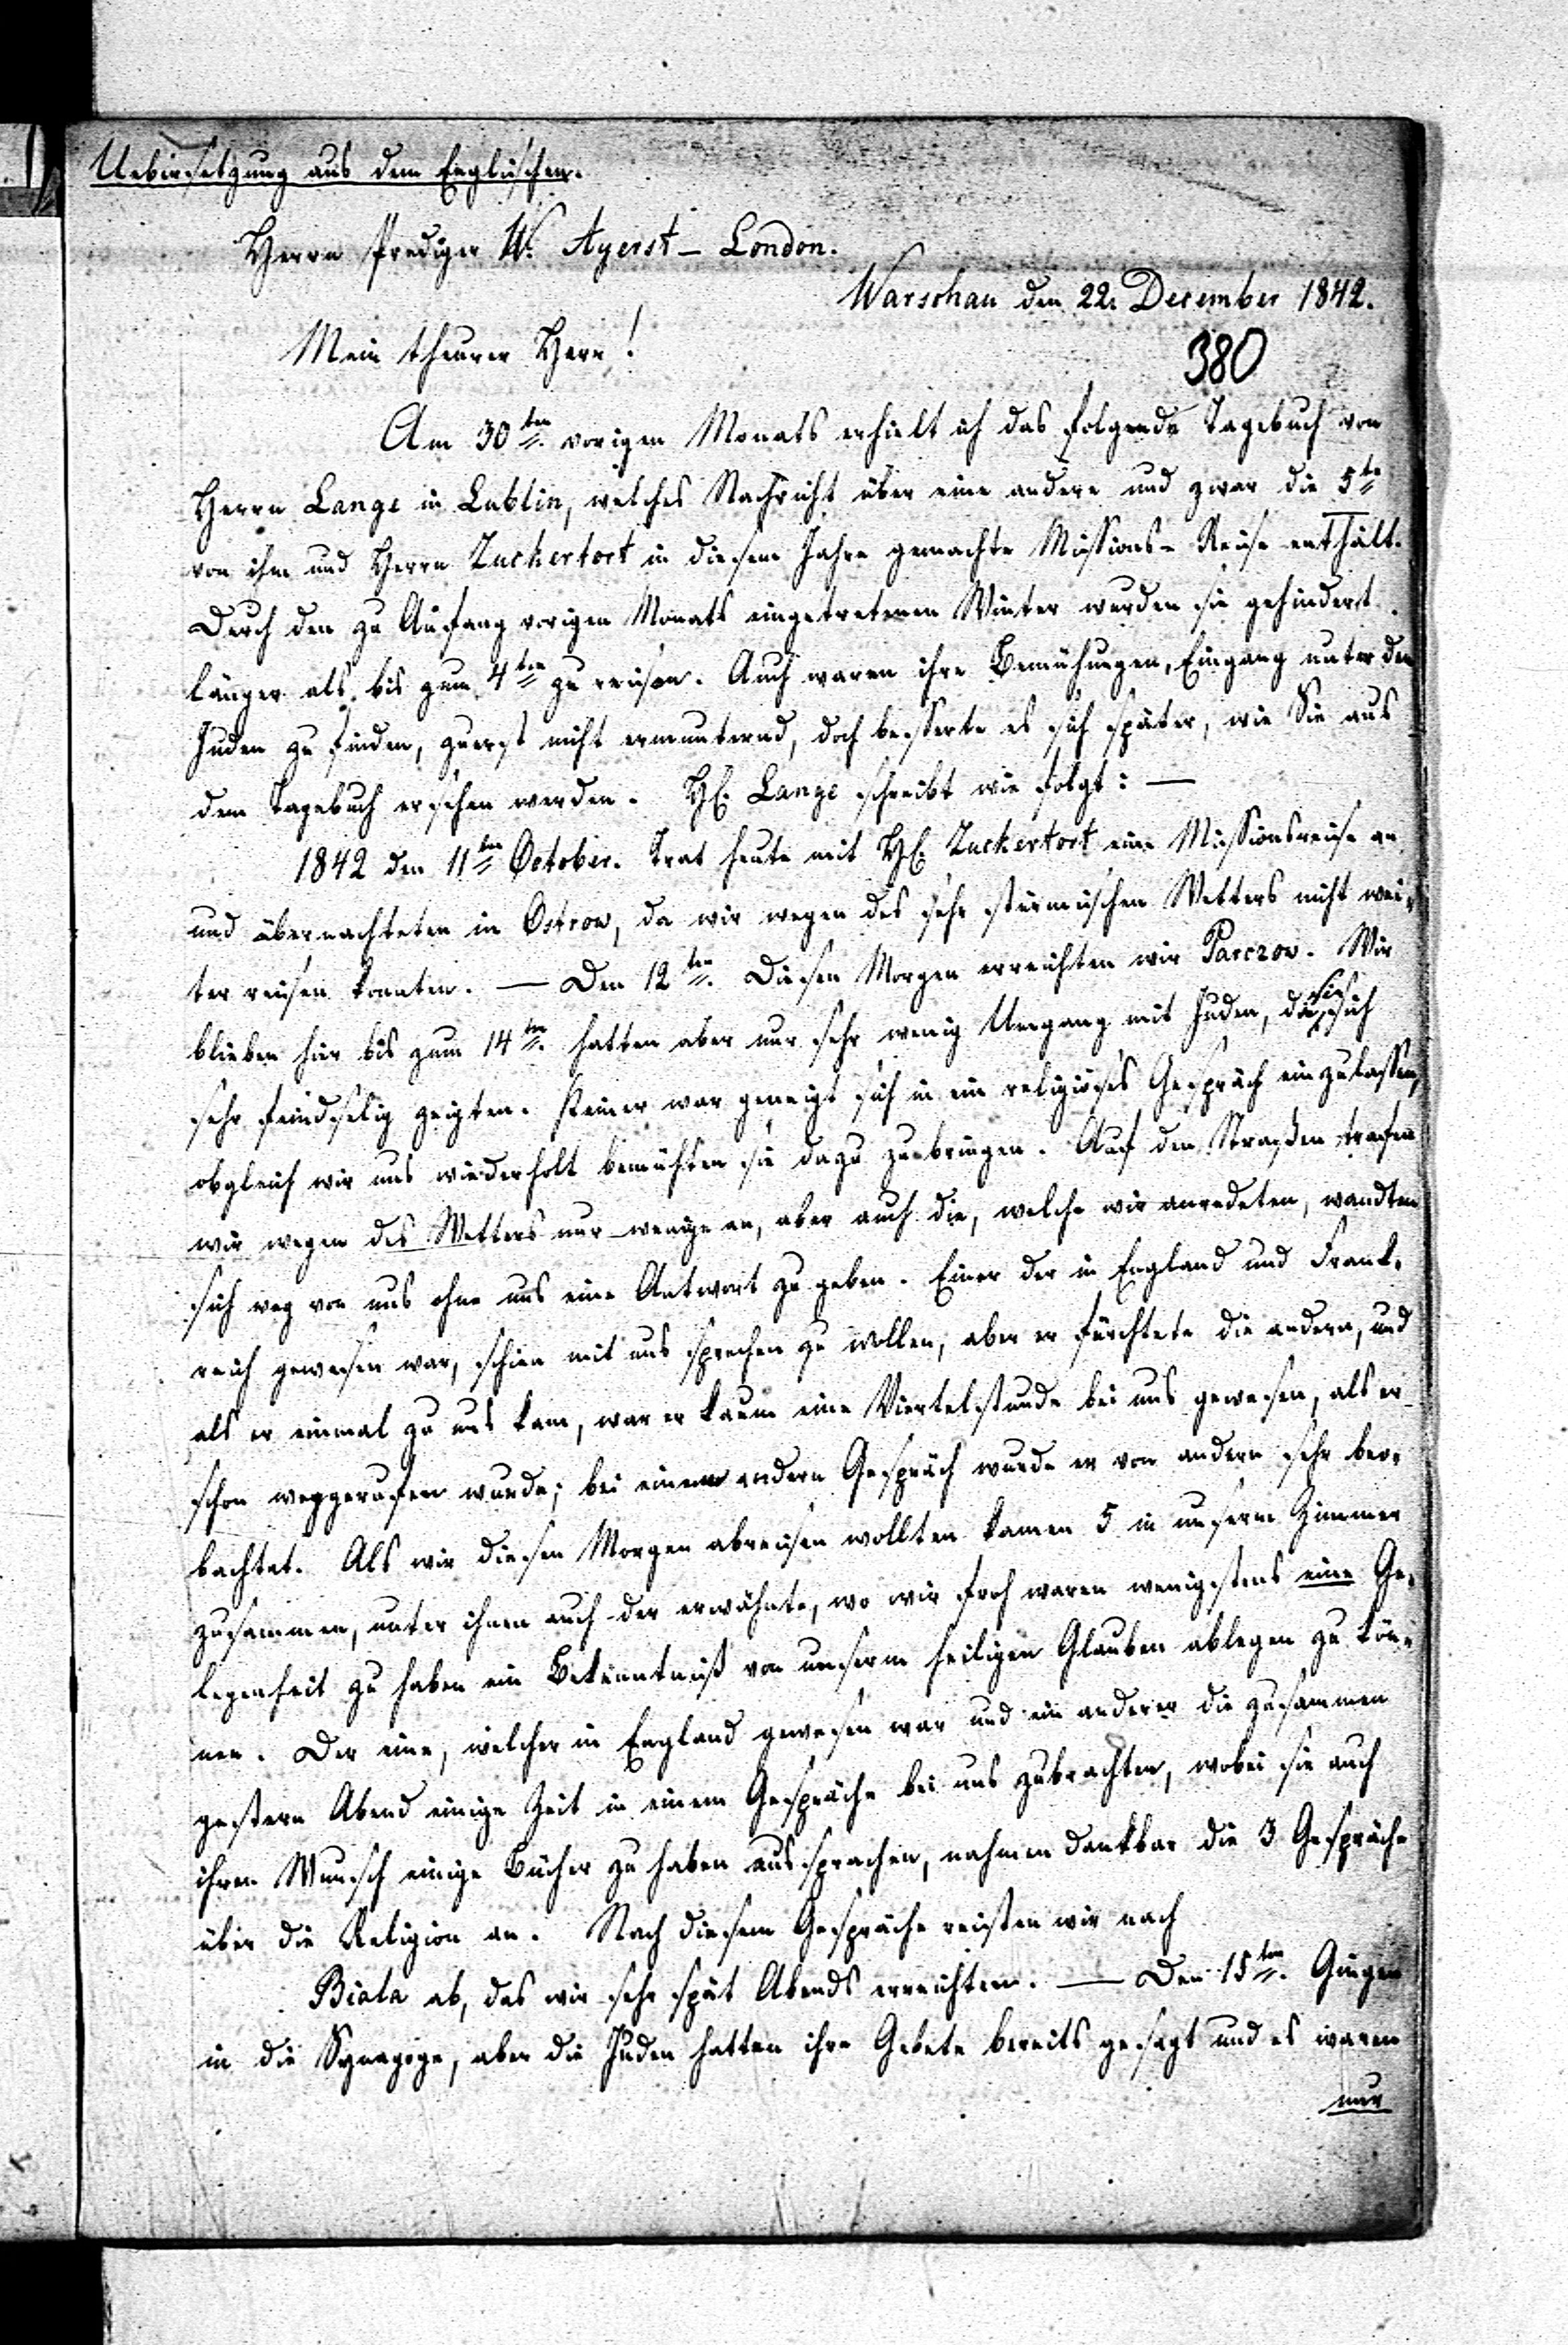 Uebersetzung aus dem Englischen.
Herrn Prediger W. Ayerst – London.
Warschau den 22. December 1842.
Mein theurer Herr!
380
Am 30ten vorigen Monats erhielt ich das folgende Tagebuch von
Herrn Lange in Lublin, welches Nachricht über eine andere und zwar die 5te
von ihm und Herrn Zuckertort in diesem Jahre gemachte Missions-Reise enthält.
Durch den zu Anfang vorigen Monats eingetretenen Winter wurden sie gehindert
länger als bis zum 4ten zu reisen. Auch waren ihre Bemühungen, Eingang unter den
Juden zu finden, zuerst nicht ermunternd, doch besserte es sich später, wie Sie aus
dem Tagebuch ersehen werden. H. Lange schreibt wie folgt: —
1842 den 11ten October. Trat heute mit H. Zuckertort eine Missionsreise an
und übernachteten in Ostrow, da wir wegen des sehr stürmischen Wetters nicht wei-
ter reisen konnten. — Den 12ten. Diesen Morgen erreichten wir Parczow. Wir
blieben hier bis zum 14ten. hatten aber nur sehr wenig Umgang mit Juden, die sich
sehr feindselig zeigten. Keiner war geneigt sich in ein religiöses Gespräch einzulassen,
obgleich wir uns wiederholt bemühten sie dazu zu bringen. Auf den Straßen trafen
wir wegen des Wetters nur wenige an, aber auch die, welche wir anredeten, wandten
sich weg von uns ohne uns eine Antwort zu geben. Einer der in England und Frank-
reich gewesen war, schien mit uns sprechen zu wollen, aber er fürchtete die andern, und
als er einmal zu uns kam, war er kaum eine Viertelstunde bei uns gewesen, als er
schon weggerufen wurde; bei einem andern Gespräch wurde er von andern sehr beo-
bachtet. Als wir diesen Morgen abreisen wollten kamen 5 in unserm Zimmer
zusammen, unter ihnen auch der erwähnte, wo wir froh waren wenigstens eine Ge-
legenheit zu haben ein Bekenntniß von unserm heiligen Glauben ablegen zu kön-
nen. Der eine, welcher in England gewesen war und ein anderer die zusammen
gestern Abend einige Zeit in einem Gespräche bei uns zubrachten, wobei sie auch
ihren Wunsch einige Bücher zu haben aussprachen, nahmen dankbar die 3 Gespräche
über die Religion an. Nach diesem Gespräche reisten wir nach
Biala ab, das wir sehr spät Abends erreichten. — Den 15ten. Gingen
in die Synagoge, aber die Juden hatten ihre Gebete bereits gesagt und es waren
nur